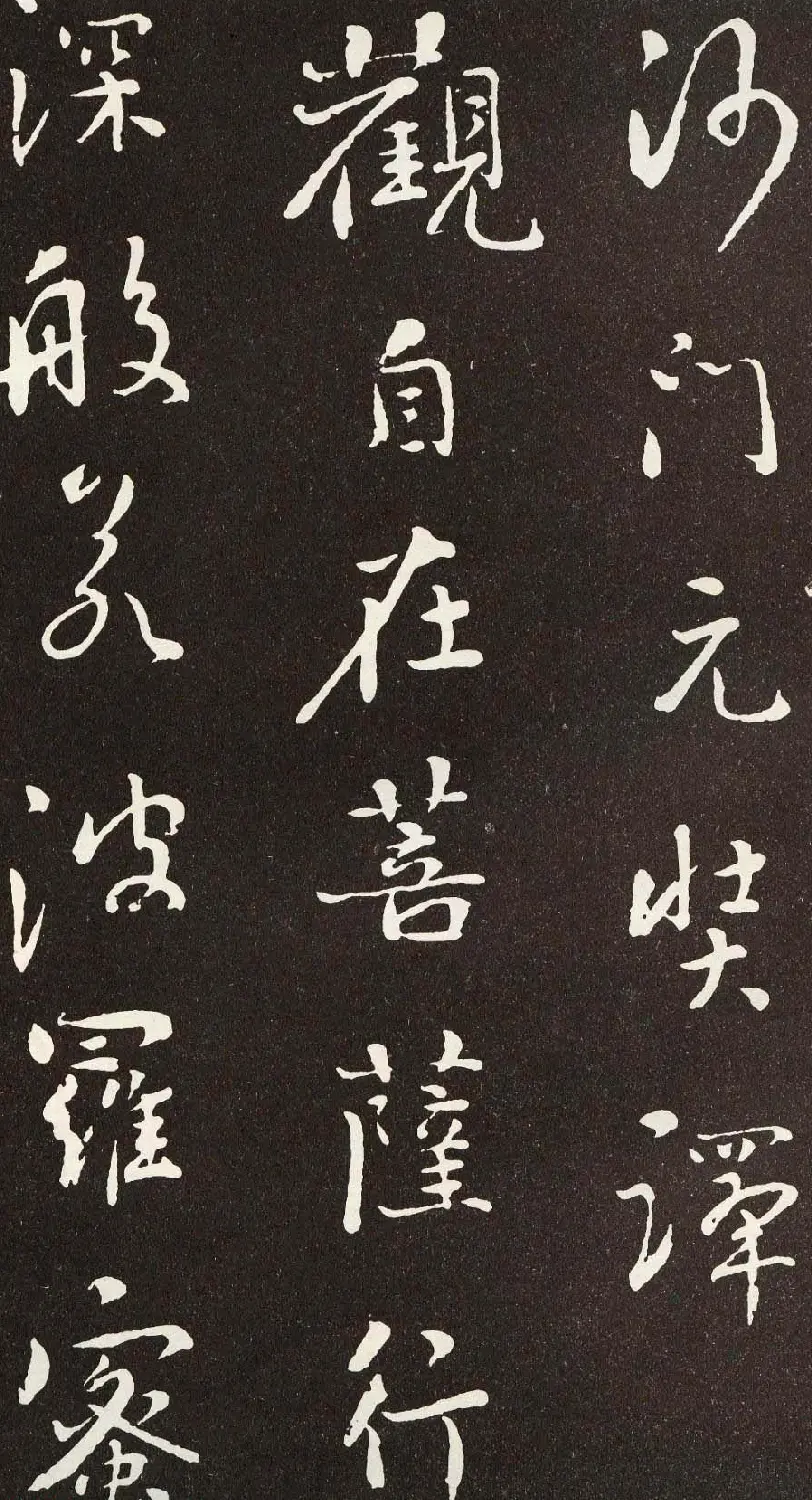 沙門元奘譯
觀自在菩薩行
深般若波羅蜜